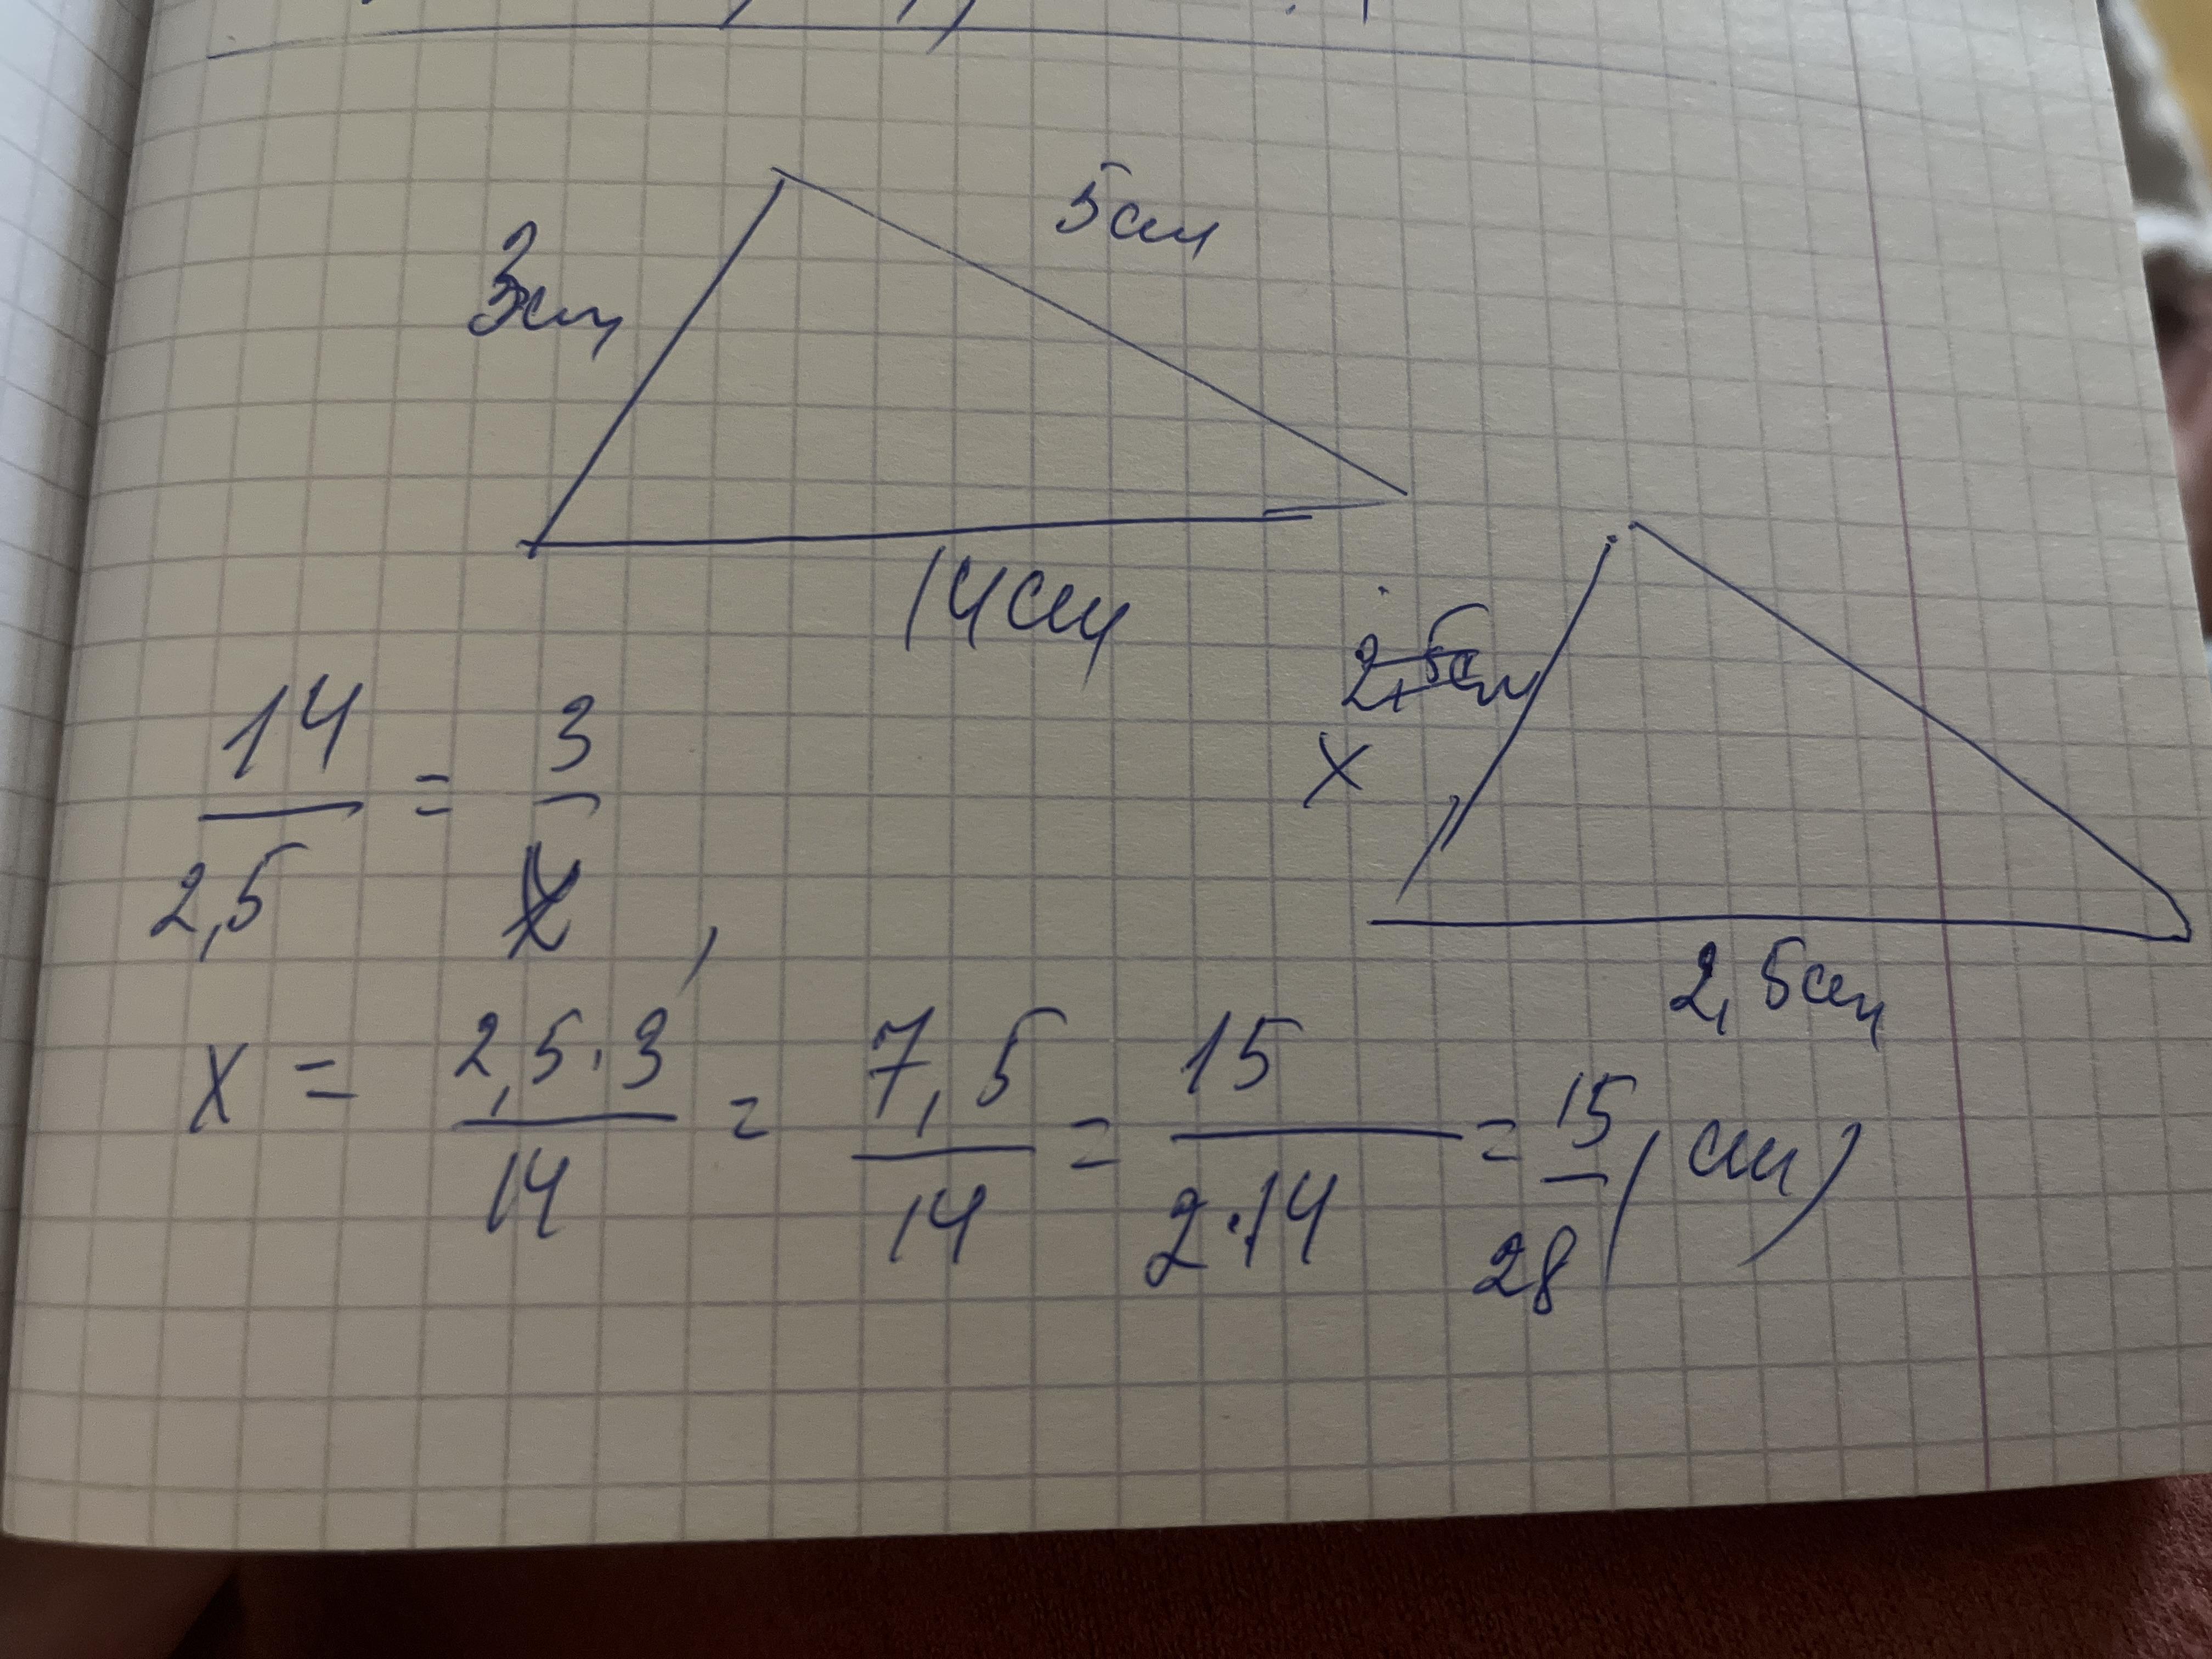 5см
3см
14см
2,5см
x
14/2,5 = 3/x ,
2,5см
x = 2,5·3/14 = 7,5/14 = 15/2·14 = 15/28 (см)